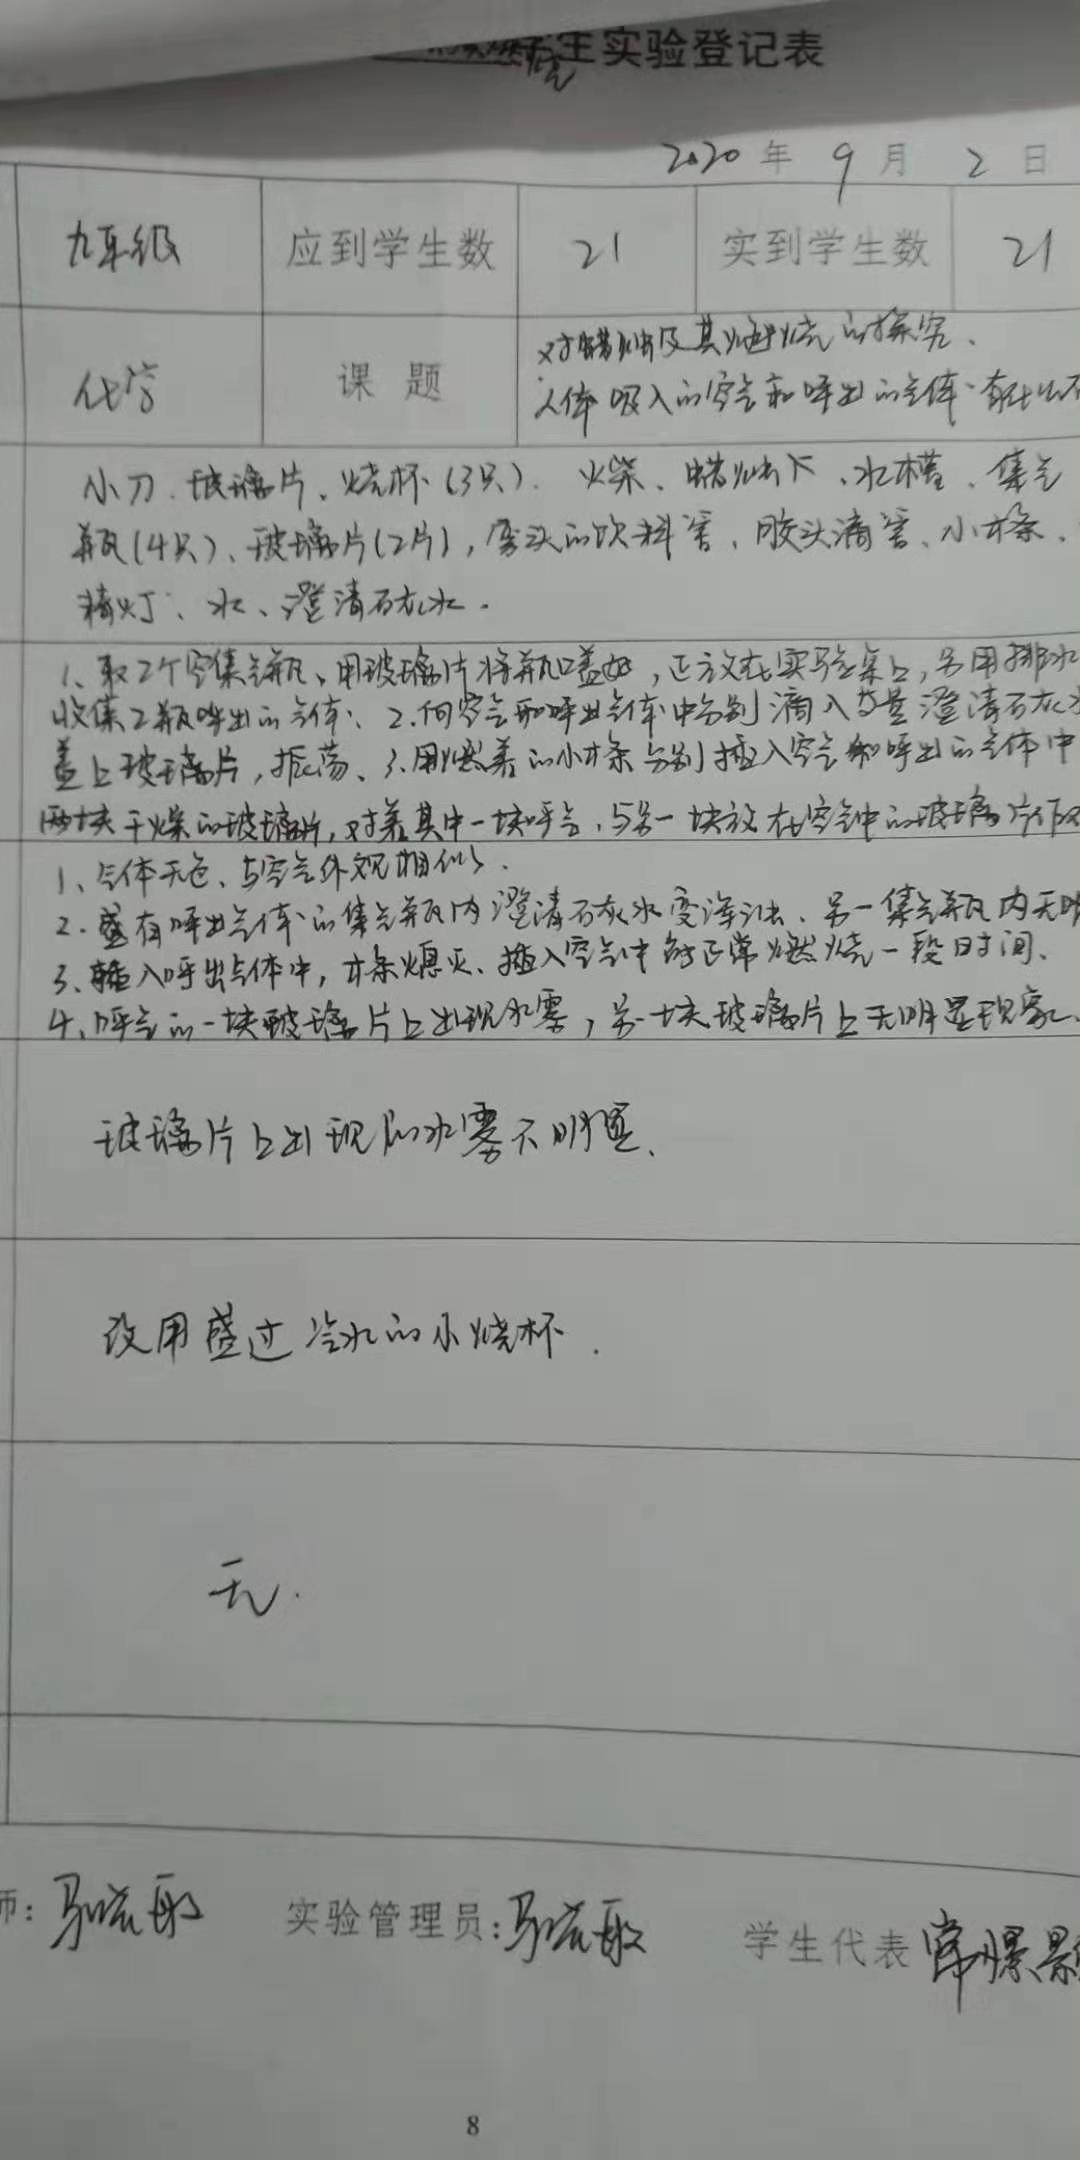 生实验登记表
2020年 9月 2日
九年级 应到学生数 21 实到学生数 21
化学 课题 对蜡烛及其燃烧的探究、
人体吸入的空气和呼出的气体有什么不
小刀、玻璃片、烧杯(3只)、火柴、蜡烛、水槽、集气
瓶(4只)、玻璃片(2片),弯头的饮料管、胶头滴管、小木条、
精灯、水、澄清石灰水.
1、取2个空集气瓶、用玻璃片将瓶口盖好,正放在实验桌上,另用排水
收集2瓶呼出的气体、2.向空气和呼出气体中分别滴入等量澄清石灰水
盖上玻璃片,振荡、3.用燃着的小木条分别插入空气和呼出的气体中
两块干燥的玻璃片,对着其中一块呼气,与另一块放在空气中的玻璃片
1、气体无色、与空气外观相似.
2.盛有呼出气体的集气瓶内澄清石灰水变浑浊、另一集气瓶内无明
3、插入呼出气体中,木条熄灭、插入空气中正常燃烧一段时间、
4、呼气的一块玻璃片上出现水雾,另一块玻璃片上无明显现象、
玻璃片上出现的水雾不明显.
改用盛过冷水的小烧杯.
无.
师: 实验管理员: 学生代表
8